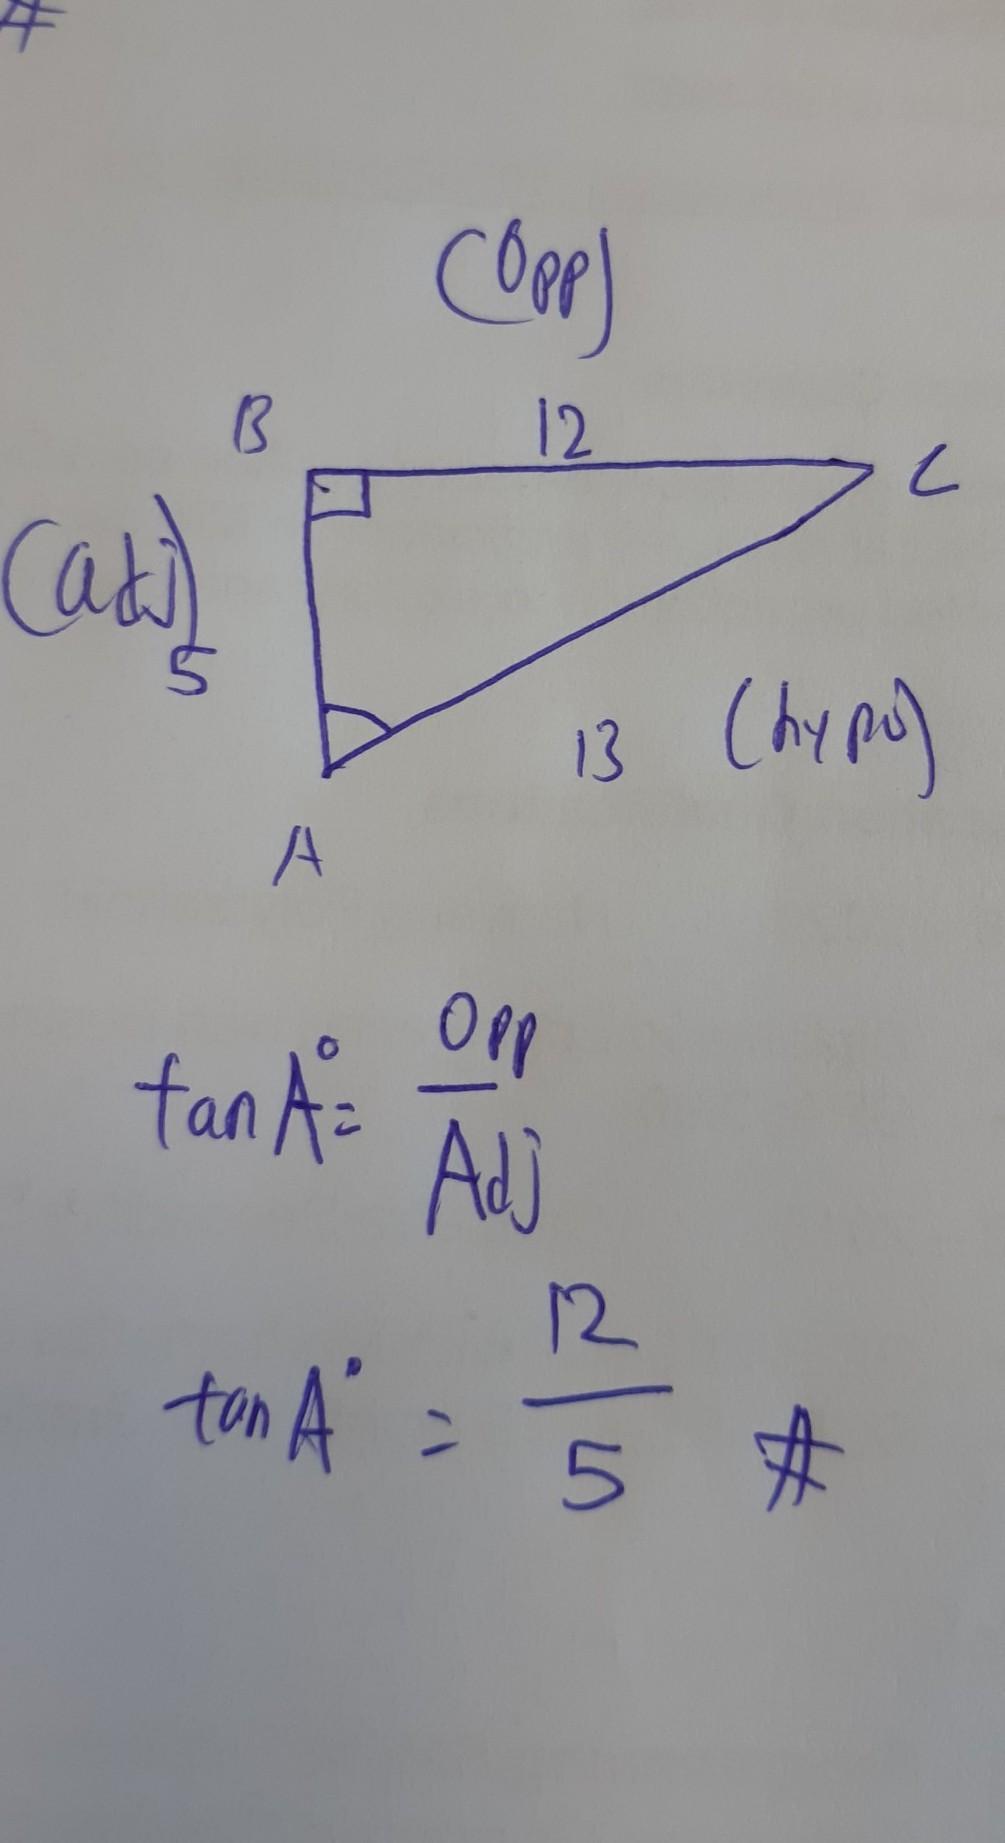 #
(Opp)
B 12 C
(adj)
5
13 (hypo)
A
tan A° = Opp
Adj
tan A° = 12
5 #